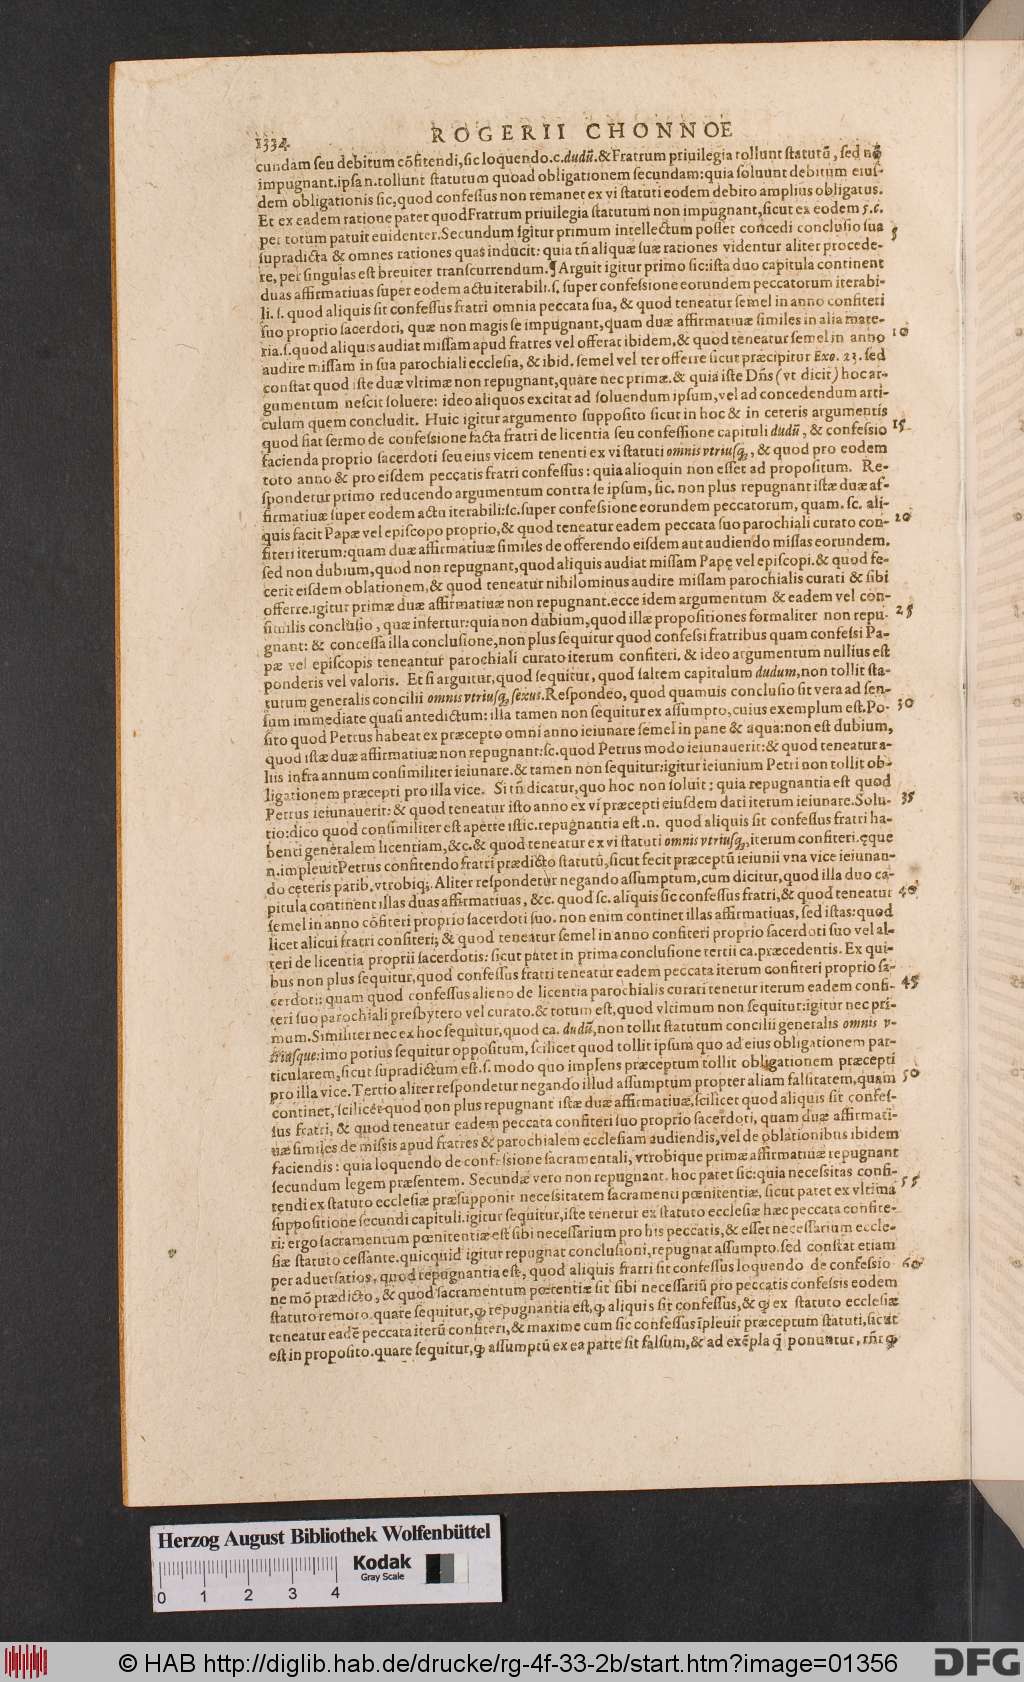 1334
ROGERII CHONNOE
cundam seu debitum cõfitendi, sic loquendo.c.dudũ.&Fratrum priuilegia tollunt statutũ, sed nõ
impugnant.ipsa n.tollunt statutum quoad obligationem secundam:quia soluunt debitum eius-
dem obligationis sic,quod confessus non remanet ex vi statuti eodem debito amplius obligatus.
Et ex eadem ratione patet quodFratrum priuilegia statutum non impugnant,sicut ex eodem 5.c.
per totum patuit euidenter.Secundum igitur primum intellectum posset concedi conclusio sua
5
supradicta & omnes rationes quas inducit: quia tñ aliquæ suæ rationes videntur aliter procede-
re, per singulas est breuiter transcurrendum.¶Arguit igitur primo sic:ista duo capitula continent
duas affirmatiuas super eodem actu iterabili.s. super confessione eorundem peccatorum iterabi-
li. s. quod aliquis sit confessus fratri omnia peccata sua, & quod teneatur semel in anno confiteri
suo proprio sacerdoti, quæ non magis se impugnant,quam duæ affirmatiuæ similes in alia mate-
10
ria.s.quod aliquis audiat missam apud fratres vel offerat ibidem,& quod teneatur semel in anno
audire missam in sua parochiali ecclesia, & ibid. semel vel ter offerre sicut præcipitur Exo. 23. sed
constat quod iste duæ vltimæ non repugnant,quare nec primæ.& quia iste Dñs (vt dicit) hoc ar-
gumentum nescit soluere: ideo aliquos excitat ad soluendum ipsum,vel ad concedendum arti-
culum quem concludit. Huic igitur argumento supposito sicut in hoc & in ceteris argumentis
quod fiat sermo de confessione facta fratri de licentia seu confessione capituli dudũ, & confessio
15
facienda proprio sacerdoti seu eius vicem tenenti ex vi statuti omnis vtriusq;, & quod pro eodem
toto anno & pro eisdem peccatis fratri confessus : quia alioquin non esset ad propositum. Re-
spondetur primo reducendo argumentum contra se ipsum, sic. non plus repugnant istæ duæ af-
firmatiuæ super eodem actu iterabili:sc.super confessione eorundem peccatorum, quam. sc. ali-
quis facit Papæ vel episcopo proprio,& quod teneatur eadem peccata suo parochiali curato con-
20
fiteri iterum:quam duæ affirmatiuæ similes de offerendo eisdem aut audiendo missas eorundem.
sed non dubium,quod non repugnant,quod aliquis audiat missam Papę vel episcopi.& quod fe-
cerit eisdem oblationem,& quod teneatur nihilominus audire missam parochialis curati & sibi
offerre.igitur primæ duæ affirmatiuæ non repugnant.ecce idem argumentum & eadem vel con-
similis conclusio, quæ infertur:quia non dubium,quod illæ propositiones formaliter non repu-
25
gnant: & concessa illa conclusione,non plus sequitur quod confessi fratribus quam confessi Pa-
pæ vel episcopis teneantur parochiali curato iterum confiteri. & ideo argumentum nullius est
ponderis vel valoris. Et si arguitur,quod sequitur, quod saltem capitulum dudum,non tollit sta-
tutum generalis concilii omnis vtriusq; sexus.Respondeo, quod quamuis conclusio sit vera ad sen-
sum immediate quasi antedictum: illa tamen non sequitur ex assumpto,cuius exemplum est.Po-
30
sito quod Petrus habeat ex præcepto omni anno ieiunare semel in pane & aqua:non est dubium,
quod istæ duæ affirmatiuæ non repugnant:sc.quod Petrus modo ieiunauerit:& quod teneatur a-
liis infra annum consimiliter ieiunare.& tamen non sequitur:igitur ieiunium Petri non tollit ob-
ligationem præcepti pro illa vice. Si tñ dicatur,quo hoc non soluit : quia repugnantia est quod
Petrus ieiunauerit: & quod teneatur isto anno ex vi præcepti eiusdem dati iterum ieiunare.Solu-
35
tio:dico quod consimiliter est aperte istic.repugnantia est .n. quod aliquis sit confessus fratri ha-
benti generalem licentiam,&c.& quod teneatur ex vi statuti omnis vtriusq;,iterum confiteri.ęque
n.impleuitPetrus confitendo fratri prædicto statutũ,sicut fecit præceptũ ieiunii vna vice ieiunan-
do cęteris parib.vtrobiq;.Aliter respondetur negando assumptum,cum dicitur,quod illa duo ca-
pitula continent illas duas affirmatiuas, &c. quod sc. aliquis sic confessus fratri,& quod teneatur
40
semel in anno cõfiteri proprio sacerdoti suo. non enim continet illas affirmatiuas, sed istas:quod
licet alicui fratri confiteri; & quod teneatur semel in anno confiteri proprio sacerdoti suo vel al-
teri de licentia proprii sacerdotis: sicut patet in prima conclusione tertii ca.præcedentis. Ex qui-
bus non plus sequitur,quod confessus fratri teneatur eadem peccata iterum confiteri proprio sa-
cerdoti: quam quod confessus alieno de licentia parochialis curati tenetur iterum eadem confi-
45
teri suo parochiali presbytero vel curato.& totum est,quod vltimum non sequitur:igitur nec pri-
mum.Similiter nec ex hoc sequitur,quod ca. dudũ,non tollit statutum concilii generalis omnis v-
triusque:imo potius sequitur oppositum, scilicet quod tollit ipsum quo ad eius obligationem par-
ticularem,sicut supradictum est.s. modo quo implens præceptum tollit obligationem præcepti
pro illa vice.Tertio aliter respondetur negando illud assumptum propter aliam falsitatem,quam
50
continet, scilicet quod non plus repugnant istæ duæ affirmatiuæ,scilicet quod aliquis sit confes-
sus fratri, & quod teneatur eadem peccata confiteri suo proprio sacerdoti, quam duæ affirmati-
uæ similes de missis apud fratres & parochialem ecclesiam audiendis,vel de oblationibus ibidem
faciendis : quia loquendo de confessione sacramentali, vtrobique primæ affirmatiuæ repugnant
secundum legem præsentem. Secundæ vero non repugnant. hoc patet sic:quia necessitas confi-
55
tendi ex statuto ecclesiæ præsupponit necessitatem sacramenti pœnitentiæ, sicut patet ex vltima
suppositione secundi capituli.igitur sequitur,iste tenetur ex statuto ecclesiæ hæc peccata confite-
ri: ergo sacramentum pœnitentiæ est sibi necessarium pro his peccatis,& esset necessarium eccle-
siæ statuto cessante.quicquid igitur repugnat conclusioni,repugnat assumpto.sed constat etiam
per aduersarios, quod repugnantia est, quod aliquis fratri sit confessus loquendo de confessio-
60
ne mõ prædicto, & quod sacramentum pœtentiæ sit sibi necessariũ pro peccatis confessis eodem
statuto remoto.quare sequitur, ꝙ repugnantia est,ꝙ aliquis sit confessus,& ꝙ ex statuto ecclesiæ
teneatur eadẽ peccata iterũ confiteri,& maxime cum sic confessus ĩpleuit præceptum statuti,sicut
est in proposito.quare sequitur, ꝙ assumptũ ex ea parte sit falsum,& ad exẽpla q̃ ponuntur, rñr ꝙ
Herzog August Bibliothek Wolfenbüttel
Kodak
Gray Scale
0 1 2 3 4
© HAB http://diglib.hab.de/drucke/rg-4f-33-2b/start.htm?image=01356
DFG